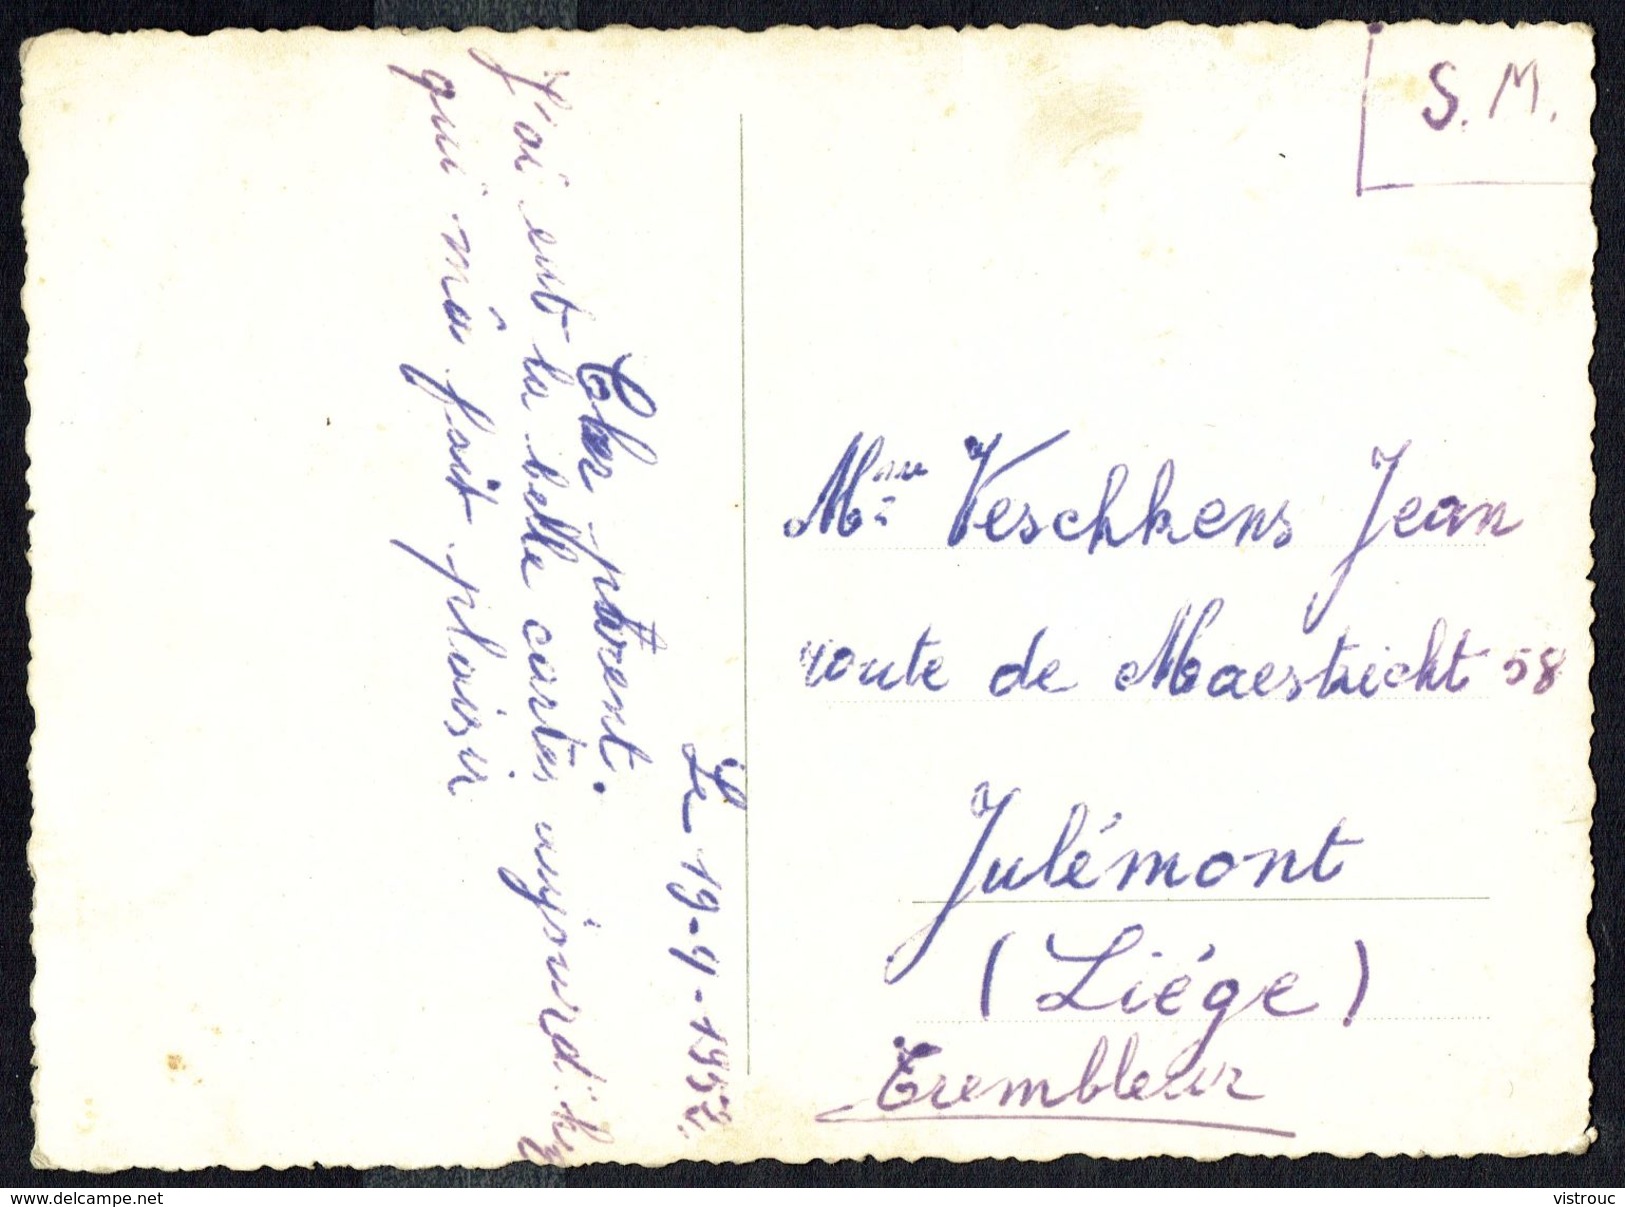 S. M.
Le 19-4-1957.
Cher parent.
J'ai eut la belle cartes aujourd'hy
qui m'a fait plaisir
Mme Veschkens Jean
route de Maestricht 58
Julémont
(Liége)
Trembleur
© delcampe.net
vistrouc